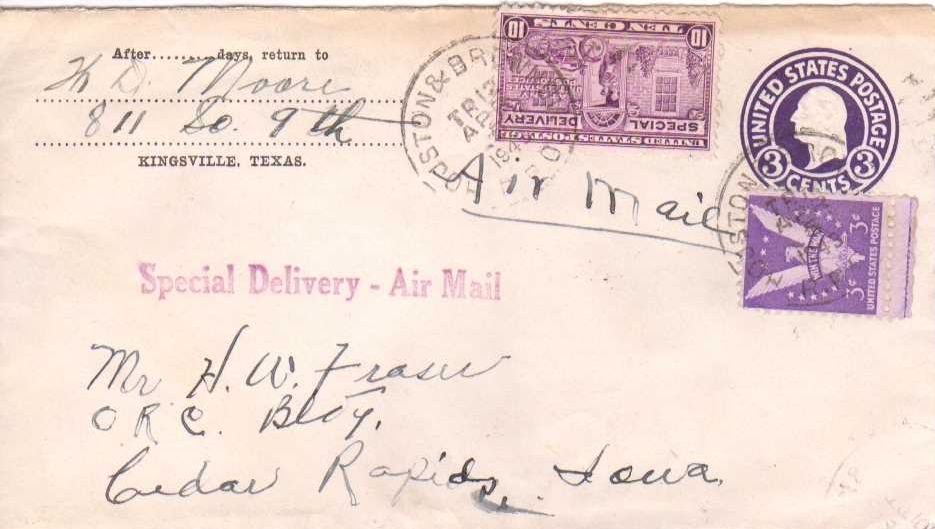 After........days, return to
H D Moore
811 So. 9th
KINGSVILLE, TEXAS.
HOUSTON & BROWN
TR 12
AP
194
10 TEN CENTS 10
SPECIAL DELIVERY
UNITED STATES POSTAGE
UNITED STATES POSTAGE
3 CENTS 3
Air Mail
3¢ 3¢
UNITED STATES POSTAGE
Special Delivery - Air Mail
Mr H. W. Fraser
O.R.C. Bldg.
Cedar Rapids, Iowa